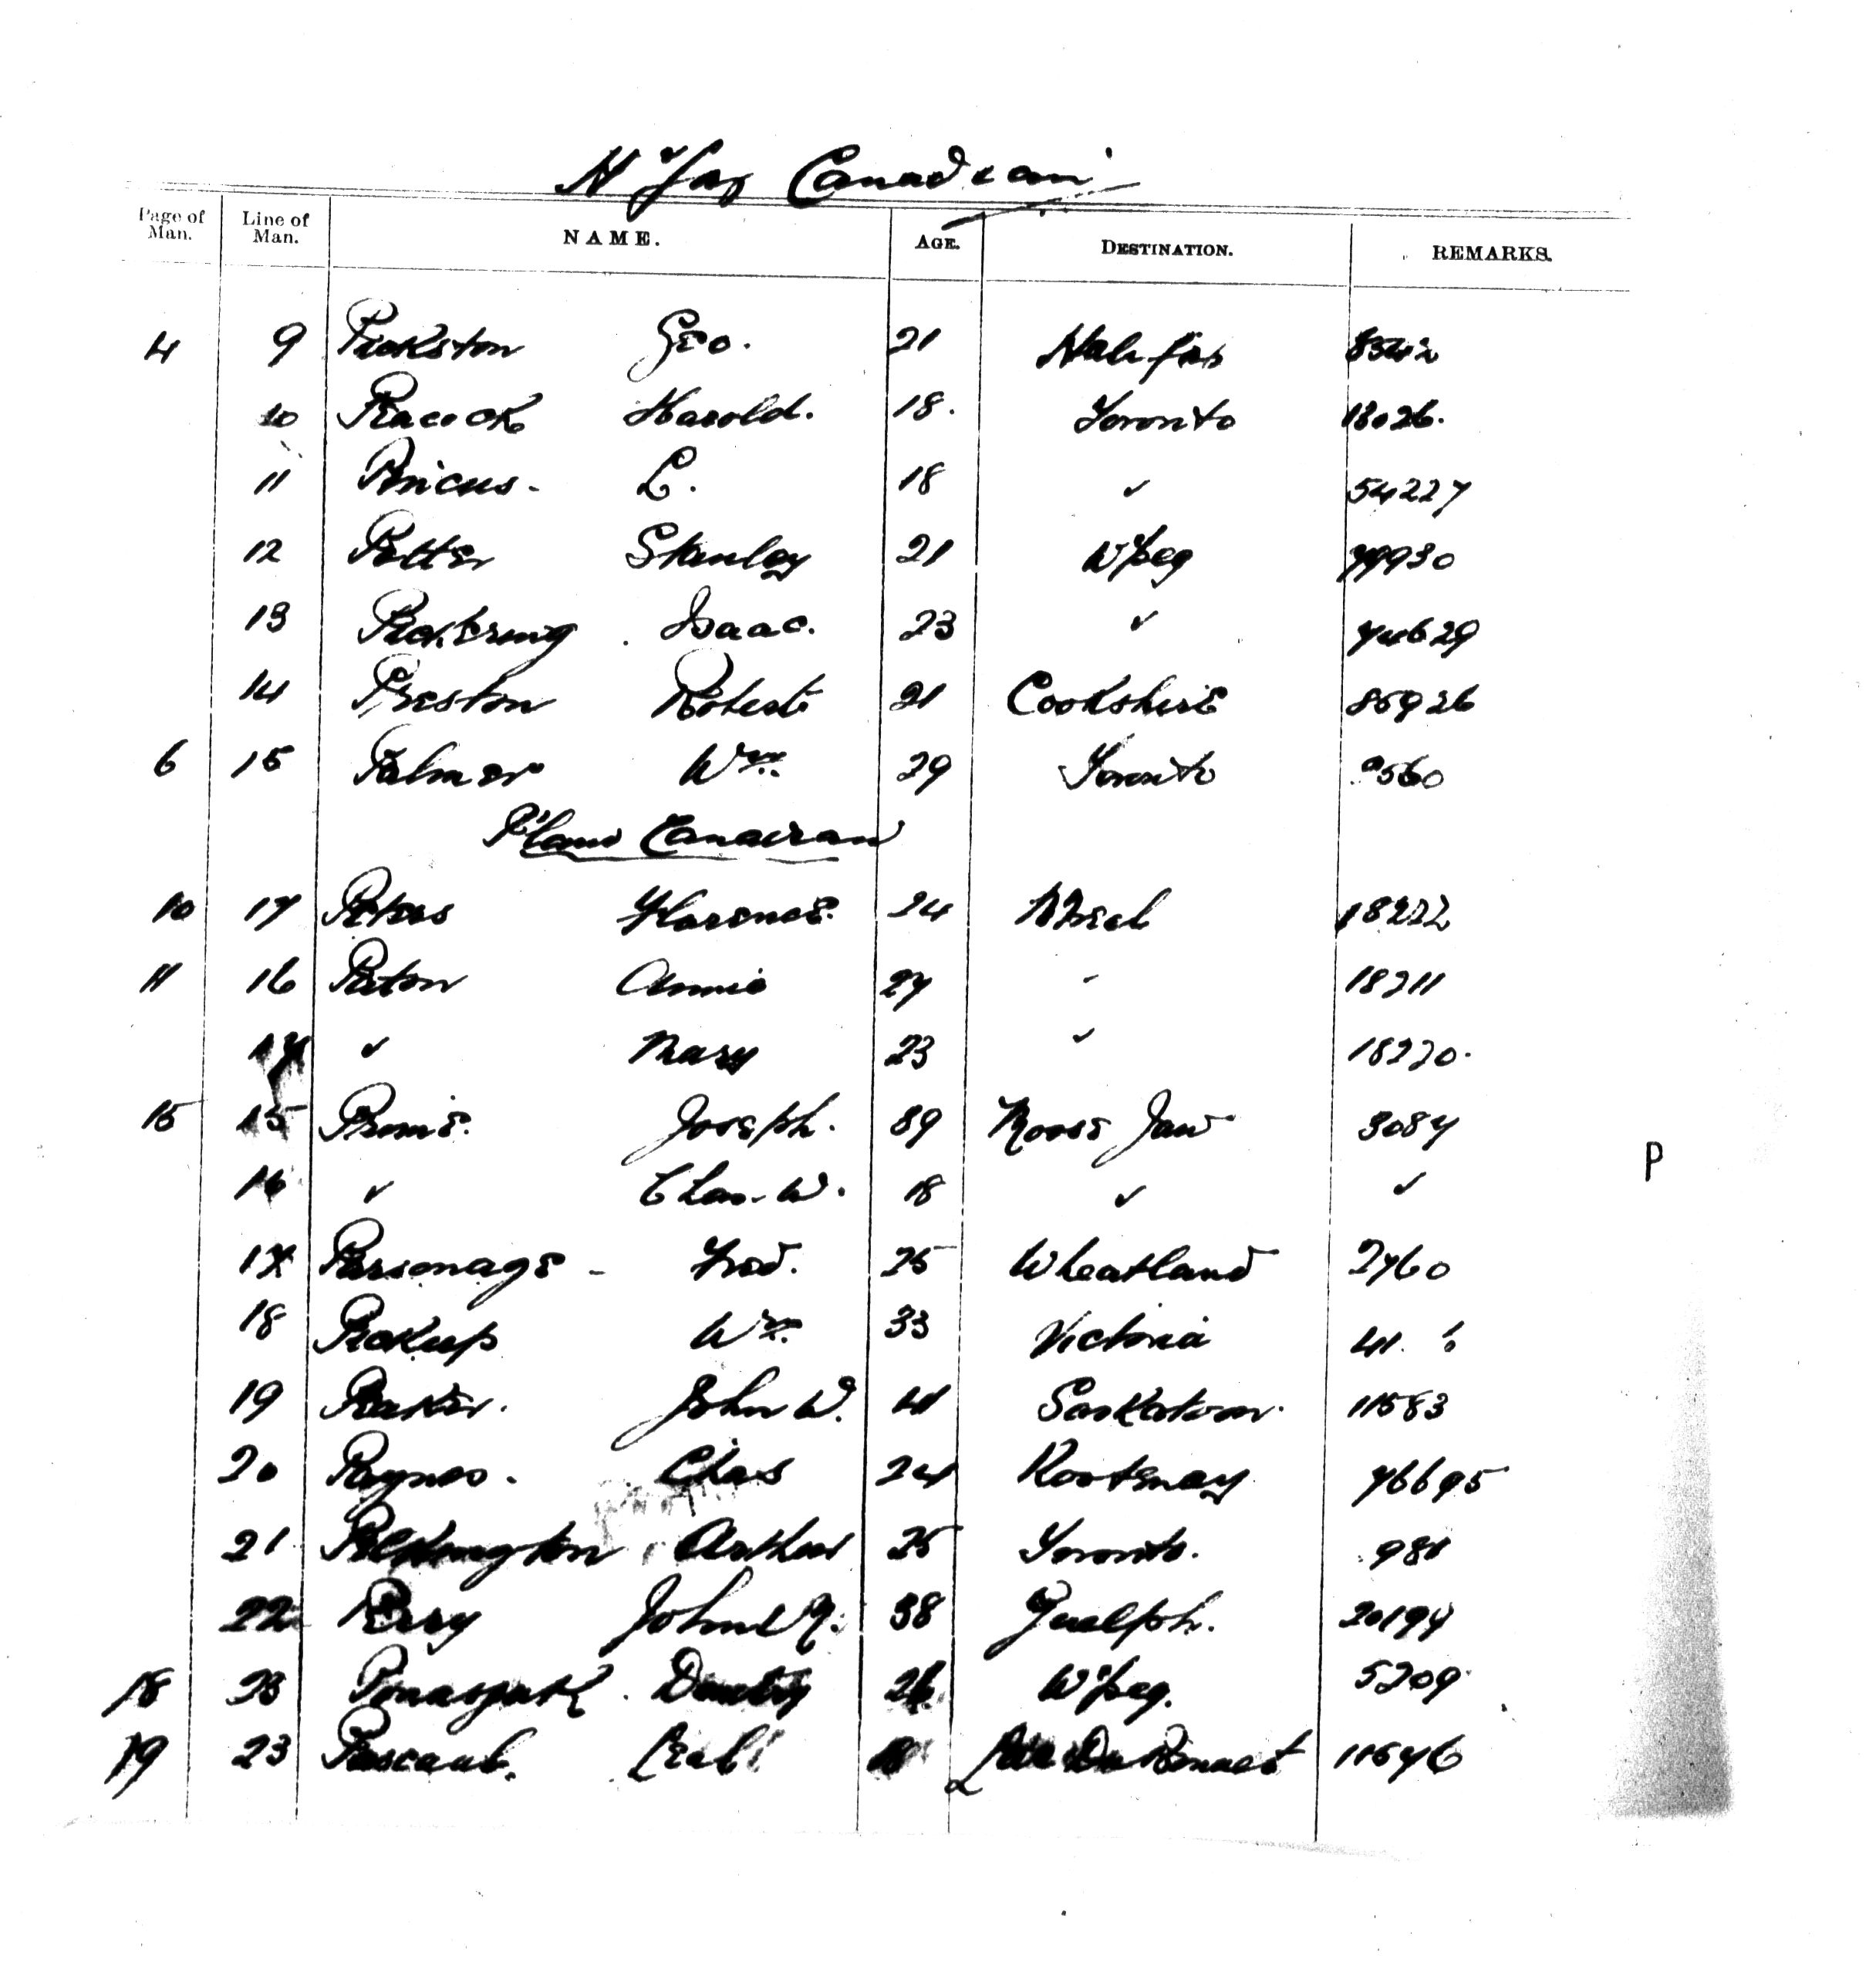 H'fax Canadian
Page of Man. Line of Man. NAME. AGE. DESTINATION. REMARKS.
4 9 Pickston Geo. 21 Halifax 8342
10 Peacock Harold. 18. Toronto 18026.
11 Pincus. L. 18 ✓ 54227
12 Potter Stanley 21 W'peg 79930
13 Pickering Isaac. 23 ✓ 74629
14 Preston Robert 21 Cookshire 85926
6 15 Palmer Wm. 29 Toronto 560
Canadian
10 17 Peters Florence. 24 Mtreal 18222
11 16 Paton Annie 27 18211
17 ✓ Mary 23 ✓ 18220.
15 15 Joseph. 39 Moose Jaw 3087
16 ✓ Chas. W. 18 ✓ ✓
P
17 Parsonage - Fred. 25 Wheatland 2760
18 Pickup Wm. 33 Victoria 41
19 John W. 41 Saskatoon. 11583
20 Paynes. Chas 24 Kootenay 76695
21 Pilkington Arthur 25 Toronto. 981
22 Perry John 38 Guelph. 20197
18 23 26 W'peg. 5209
19 23 Lac Du Bonnet 11576